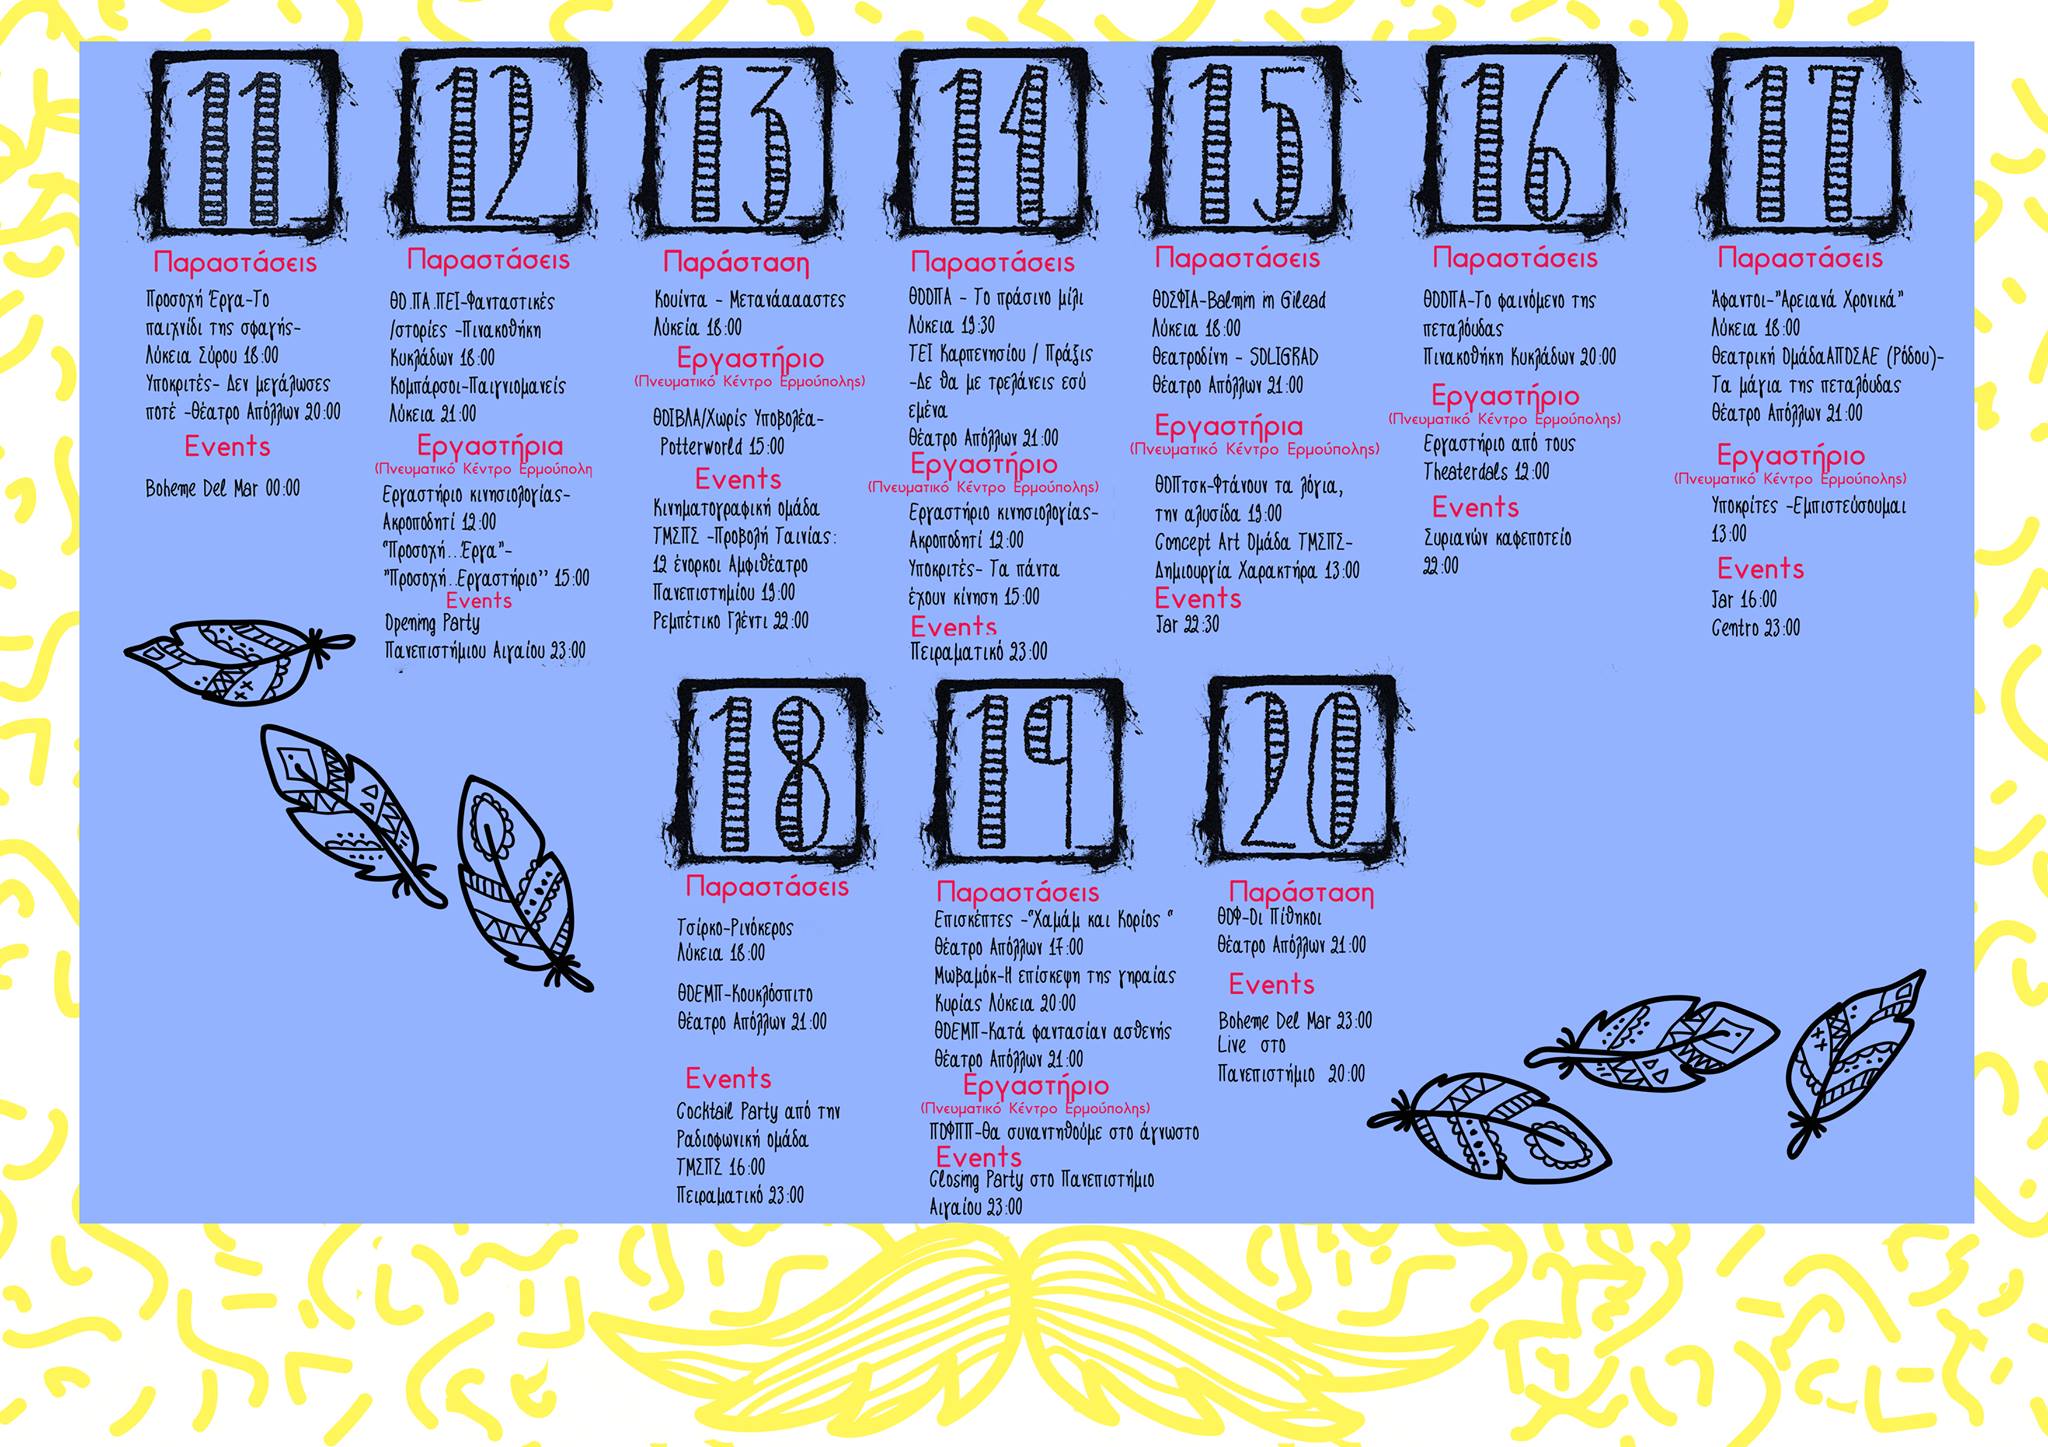 11
Παραστάσεις
Προσοχή Έργα-Το
παιχνίδι της σφαγής-
Λύκεια Σύρου 18:00
Υποκριτές- Δεν μεγάλωσες
ποτέ -Θέατρο Απόλλων 20:00
Events
Boheme Del Mar 00:00
12
Παραστάσεις
ΘΟ.ΠΑ.ΠΕΙ-Φανταστικές
Ιστορίες -Πινακοθήκη
Κυκλάδων 18:00
Κομπάρσοι-Παιγνιομανείς
Λύκεια 21:00
Εργαστήρια
(Πνευματικό Κέντρο Ερμούπολη
Εργαστήριο κινησιολογίας-
Ακροποδητί 12:00
"Προσοχή...Έργα"-
"Προσοχή..Εργαστήριο" 15:00
Events
Opening Party
Πανεπιστήμιου Αιγαίου 23:00
13
Παράσταση
Κουίντα - Μετανάααστες
Λύκεία 18:00
Εργαστήριο
(Πνευματικό Κέντρο Ερμούπολης)
ΘΟΙΒΛΑ/Χωρίς Υποβολέα-
Potterworld 15:00
Events
Κινηματογραφική ομάδα
ΤΜΣΠΣ -Προβολή Ταινίας:
12 ένορκοι Αμφιθέατρο
Πανεπιστημίου 19:00
Ρεμπέτικο Γλέντι 22:00
14
Παραστάσεις
ΘΟΟΠΑ - Το πράσινο μίλι
Λύκεια 19:30
ΤΕΙ Καρπενησίου / Πράξις
-Δε θα με τρελάνεις εσύ
εμένα
Θέατρο Απόλλων 21:00
Εργαστήριο
(Πνευματικό Κέντρο Ερμούπολης)
Εργαστήριο κινησιολογίας-
Ακροποδητί 12:00
Υποκριτές- Τα πάντα
έχουν κίνηση 15:00
Events
Πειραματικό 23:00
15
Παραστάσεις
ΘΟΣΦΙΑ-Balmin in Gilead
Λύκεια 18:00
Θεατροδίνη - SOLIGRAD
Θέατρο Απόλλων 21:00
Εργαστήρια
(Πνευματικό Κέντρο Ερμούπολης)
ΘΟΠτσκ-Φτάνουν τα λόγια,
την αλυσίδα 19:00
Concept Art Ομάδα ΤΜΣΠΣ-
Δημιουργία Χαρακτήρα 13:00
Events
Jar 22:30
16
Παραστάσεις
ΘΟΟΠΑ-Το φαινόμενο της
πεταλούδας
Πινακοθήκη Κυκλάδων 20:00
Εργαστήριο
(Πνευματικό Κέντρο Ερμούπολης)
Εργαστήριο από τους
Theaterdals 12:00
Events
Συριανών καφεποτείο
22:00
17
Παραστάσεις
Άφαντοι-"Αρειανά Χρονικά"
Λύκεια 18:00
Θεατρική ΟμάδαΑΠΟΣΑΕ (Ρόδου)-
Τα μάγια της πεταλούδας
Θέατρο Απόλλων 21:00
Εργαστήριο
(Πνευματικό Κέντρο Ερμούπολης)
Υποκρίτες -Εμπιστεύσουμαι
13:00
Events
Jar 16:00
Centro 23:00
18
Παραστάσεις
Τσίρκο-Ρινόκερος
Λύκεια 18:00
ΘΟΕΜΠ-Κουκλόσπιτο
Θέατρο Απόλλων 21:00
Events
Cocktail Party από την
Ραδιοφωνική ομάδα
ΤΜΣΠΣ 16:00
Πειραματικό 23:00
19
Παραστάσεις
Επισκέπτες -"Χαμάμ και Κορίος "
Θέατρο Απόλλων 17:00
Μωβαμόκ-Η επίσκεψη της γηραίας
Κυρίας Λύκεια 20:00
ΘΟΕΜΠ-Κατά φαντασίαν ασθενής
Θέατρο Απόλλων 21:00
Εργαστήριο
(Πνευματικό Κέντρο Ερμούπολης)
ΠΟΦΠΠ-Θα συναντηθούμε στο άγνωστο
Events
Closing Party στο Πανεπιστήμιο
Αιγαίου 23:00
20
Παράσταση
ΘΟΦ-Οι Πίθηκοι
Θέατρο Απόλλων 21:00
Events
Boheme Del Mar 23:00
Live στο
Πανεπιστήμιο 20:00